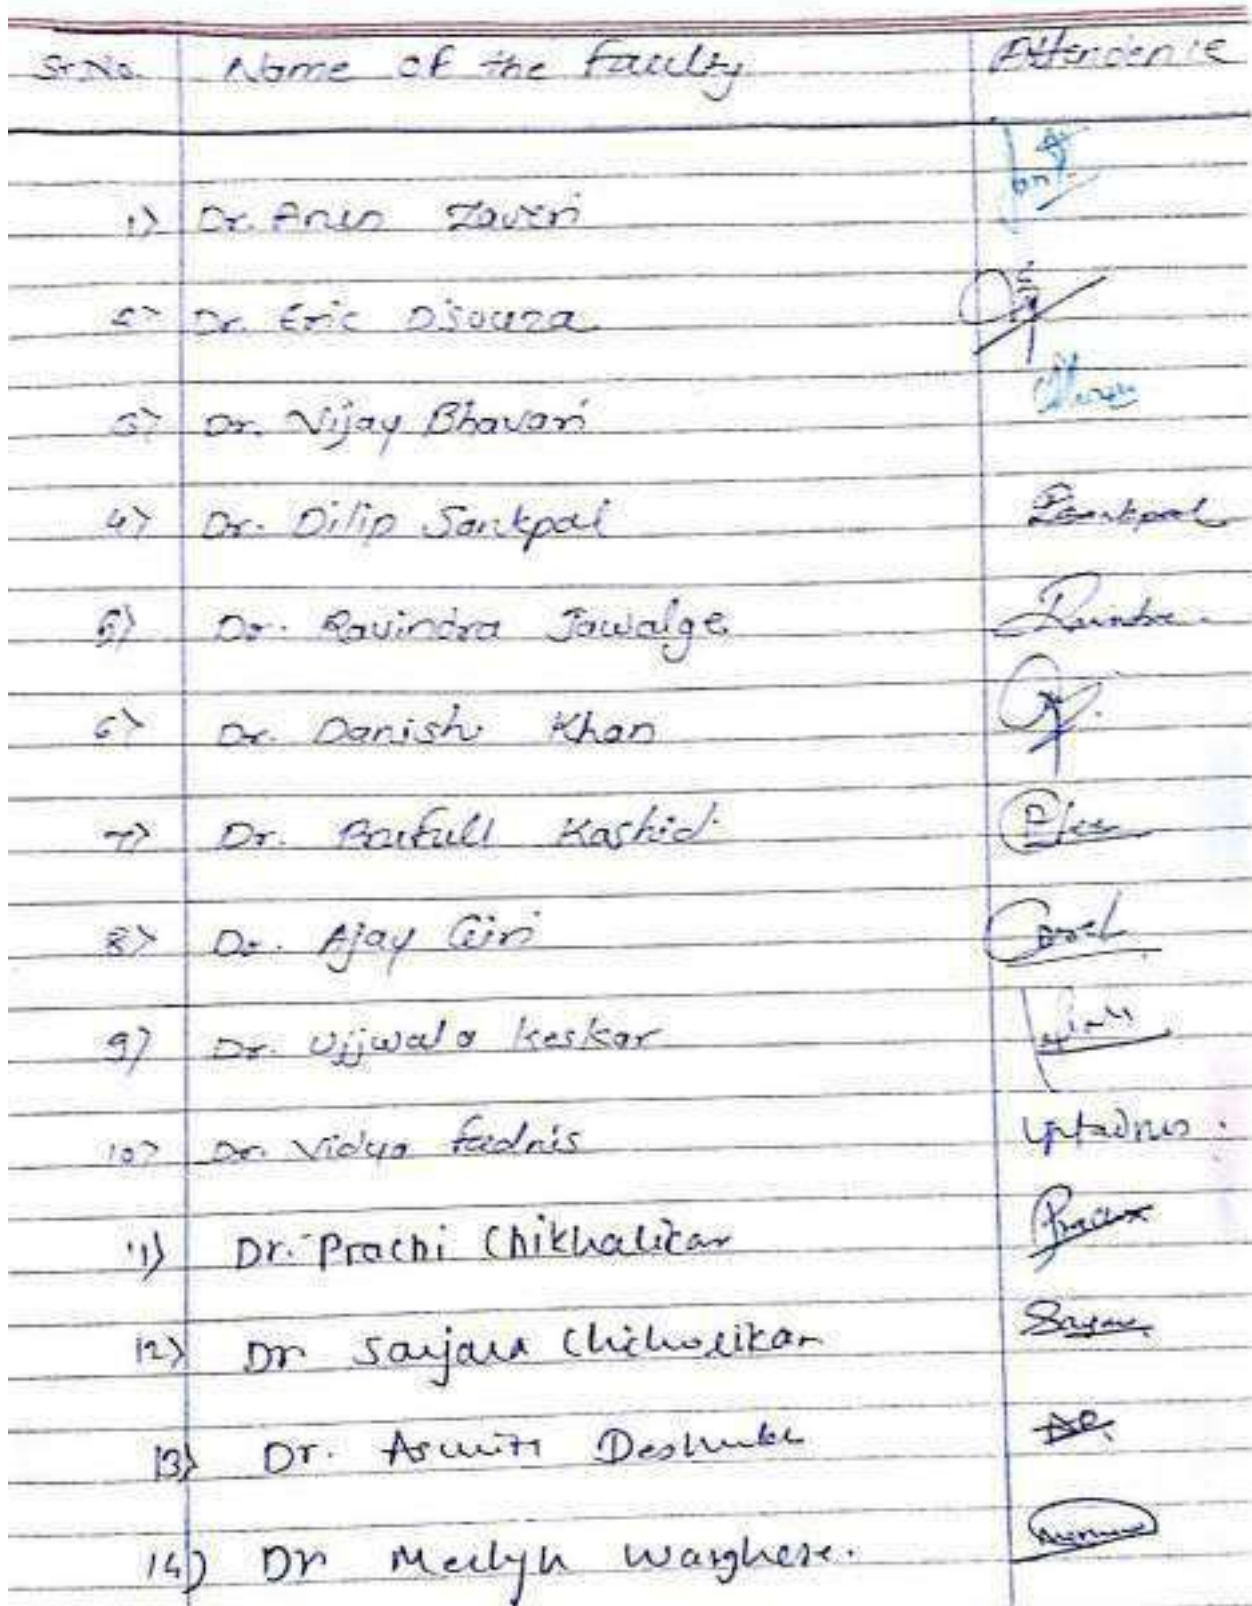 Sr.No. Name of the Faculty Attendence
1) Dr. Arun Zaveri
2) Dr. Eric Dsouza
3) Dr. Vijay Bhavari
4) Dr. Dilip Sankpal Sankpal
5) Dr. Ravindra Jawalge Ravindra
6) Dr. Danish Khan
7) Dr. Prafull Kashid
8) Dr. Ajay Giri
9) Dr. Ujjwala Keskar
10) Dr. Vidya Fadnis
11) Dr. Prachi Chikhalikar
12) Dr Sanjana Chicholikar
13) Dr. Asmita Deshmukh
14) Dr Merlyn Warghese.